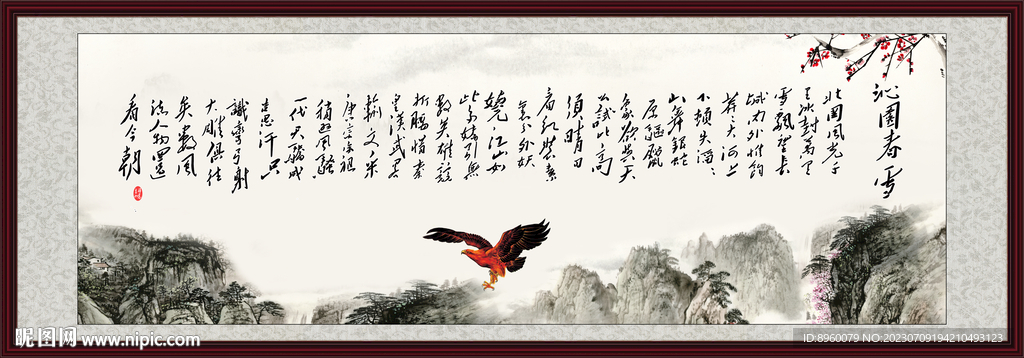 沁園春 雪
北国风光千
里冰封万里
雪飄望長
城内外惟餘
莽莽大河上
下頓失滔滔
山舞银蛇
原驅蠟
象欲與天
公試比高
須晴日
看红裝素
裹分外妖
嬈江山如
此多嬌引無
數英雄競
折腰惜秦
皇漢武略
輸文采
唐宗宋祖
稍逊风騷
一代天驕成
吉思汗只
識彎弓射
大雕俱往
矣數风
流人物還
看今朝
昵图网 www.nipic.com
ID:8960079 NO:20230709194210493123